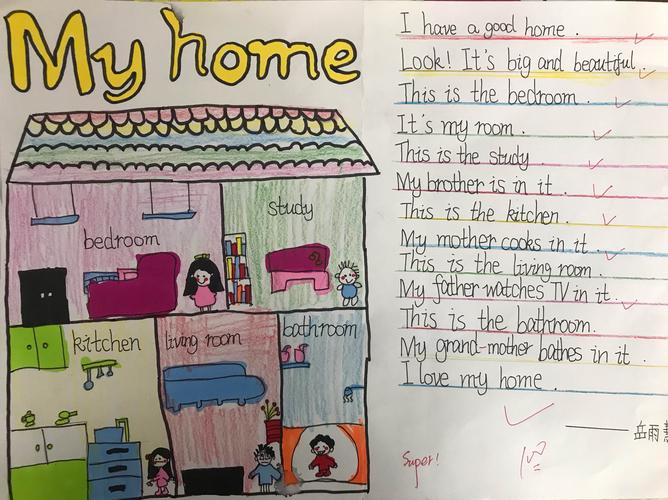 My home
bedroom
study
kitchen
living room
bathroom
I have a good home.
Look! It's big and beautiful.
This is the bedroom.
It's my room.
This is the study.
My brother is in it.
This is the kitchen.
My mother cooks in it.
This is the living room.
My father watches TV in it.
This is the bathroom.
My grand-mother bathes in it.
I love my home.
岳雨
Super!
100